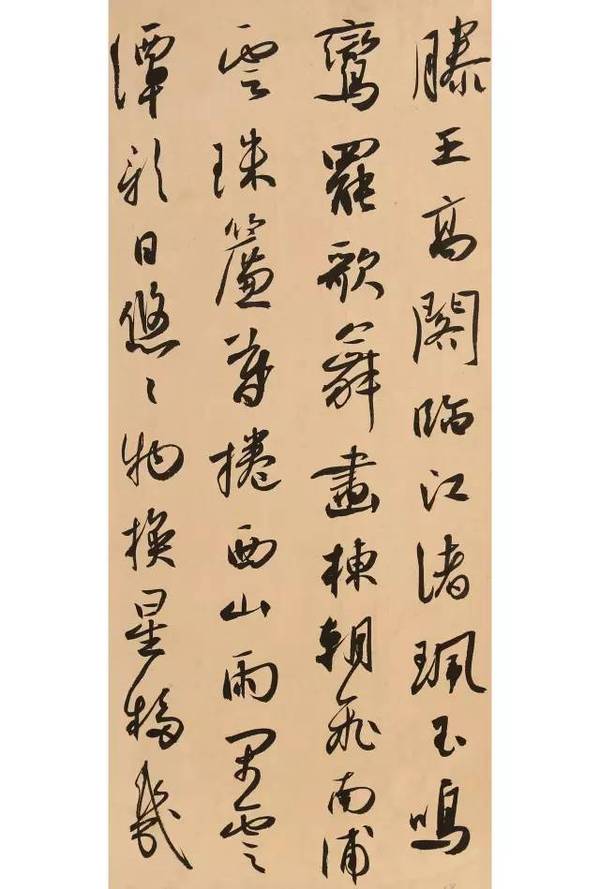 滕王高閣臨江渚珮玉鳴
鸞罷歌舞畫棟朝飛南浦
雲珠簾暮捲西山雨閒雲
潭影日悠〻物換星移幾